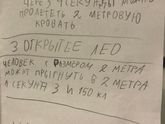 ЧЕРЕЗ 7 СЕКУНДЫ МОЖНО
ПРОЛЕТЕТЬ 2 МЕТРОВУЮ
КРОВАТЬ
3 ОТКРЫТИЕ ЛЕО
ЧЕЛОВЕК С РАЗМЕРОМ 2 МЕТРА
МОЖЕТ ПРЫГНУТЬ В 2 МЕТРА
А СЕКУНД 3 И 150 КЛ